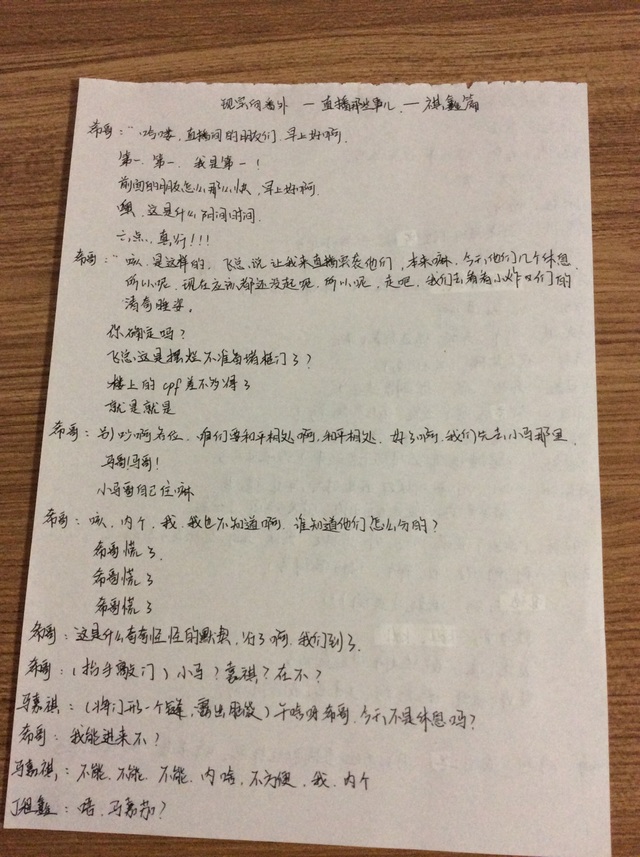 现实向番外 — 直播那些事儿 — 祺鑫篇
希哥：“哈喽，直播间的朋友们，早上好啊.
第一. 第一. 我是第一！
前面的朋友怎么那么快，早上好啊.
哦，这是什么阴间时间.
六点，真行！！！
希哥：“咳，是这样的，飞总说让我来直播突袭他们，本来嘛，今天他们几个休息.
所以呢，现在应该都还没起呢，所以呢，走吧，我们去看看小炸们的
清奇睡姿。
你确定吗？
飞总这是摆烂不准备堵柜门了？
楼上的cpf差不多得了
就是就是
希哥：别吵啊各位，咱们要和平相处啊，和平相处，好了啊，我们先去小马那里.
马哥！马哥！
小马哥自己住嘛
希哥：咳，内个，我，我也不知道啊，谁知道他们怎么分的？
希哥慌了.
希哥慌了
希哥慌了
希哥：这是什么奇奇怪怪的默契，行了啊，我们到了.
希哥：（抬手敲门）小马？嘉祺？在不？
马嘉祺：（将门开一个缝，露出）干啥呀希哥，今天不是休息吗？
希哥：我能进来不？
马嘉祺：不能，不能，不能，内啥，不方便，我，内个
丁程鑫：唔，马嘉祺？